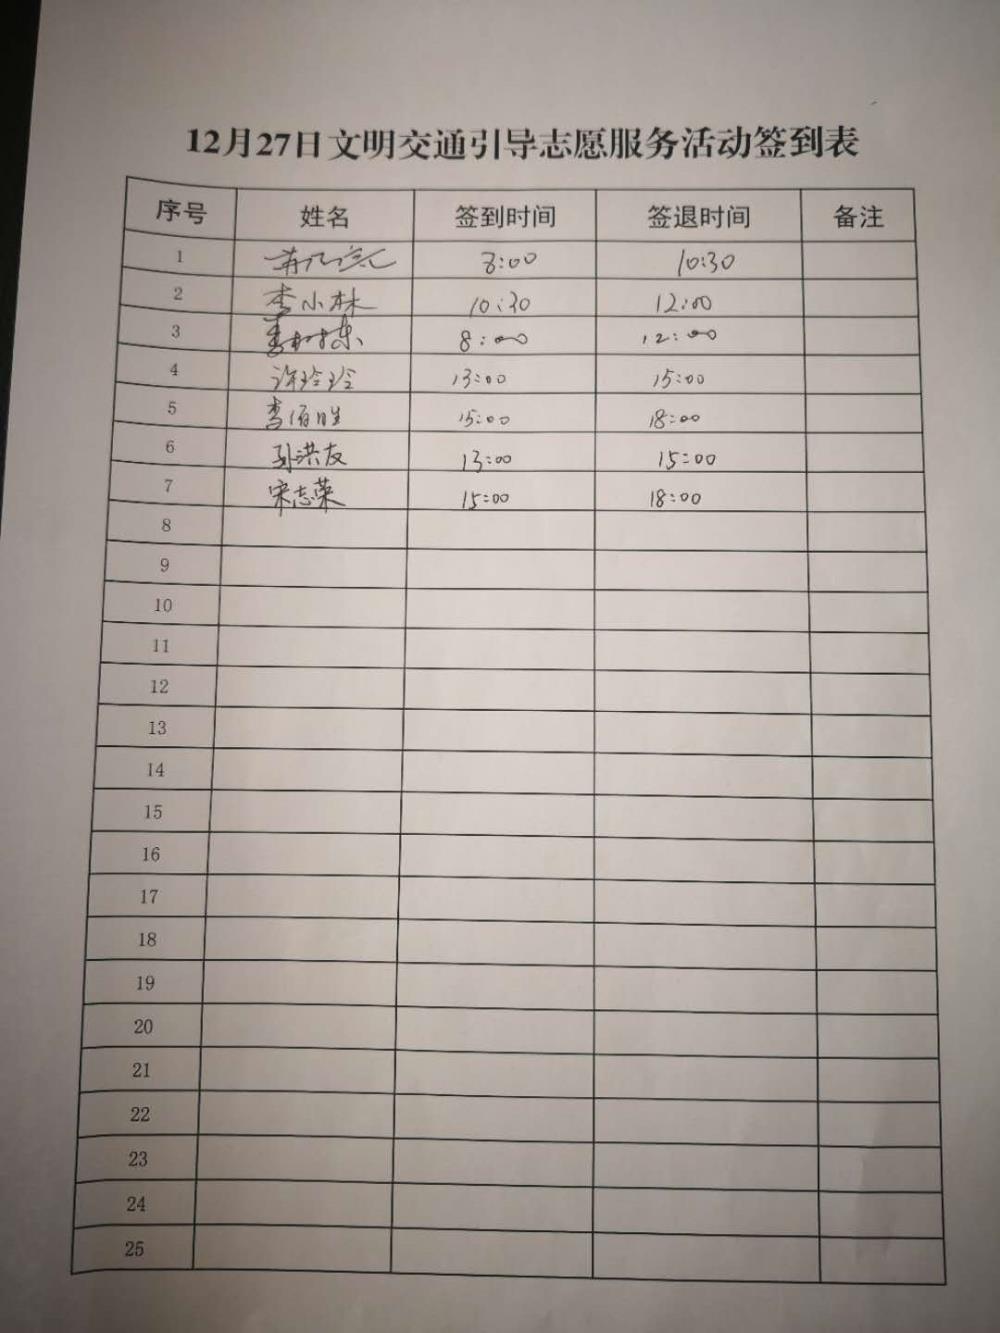 12月27日文明交通引导志愿服务活动签到表
序号 姓名 签到时间 签退时间 备注
1 8:00 10:30
2 李小林 10:30 12:00
3 李树栋 8:00 12:00
4 许玲玲 13:00 15:00
5 李佰胜 15:00 18:00
6 孙洪友 13:00 15:00
7 宋志荣 15:00 18:00
8
9
10
11
12
13
14
15
16
17
18
19
20
21
22
23
24
25